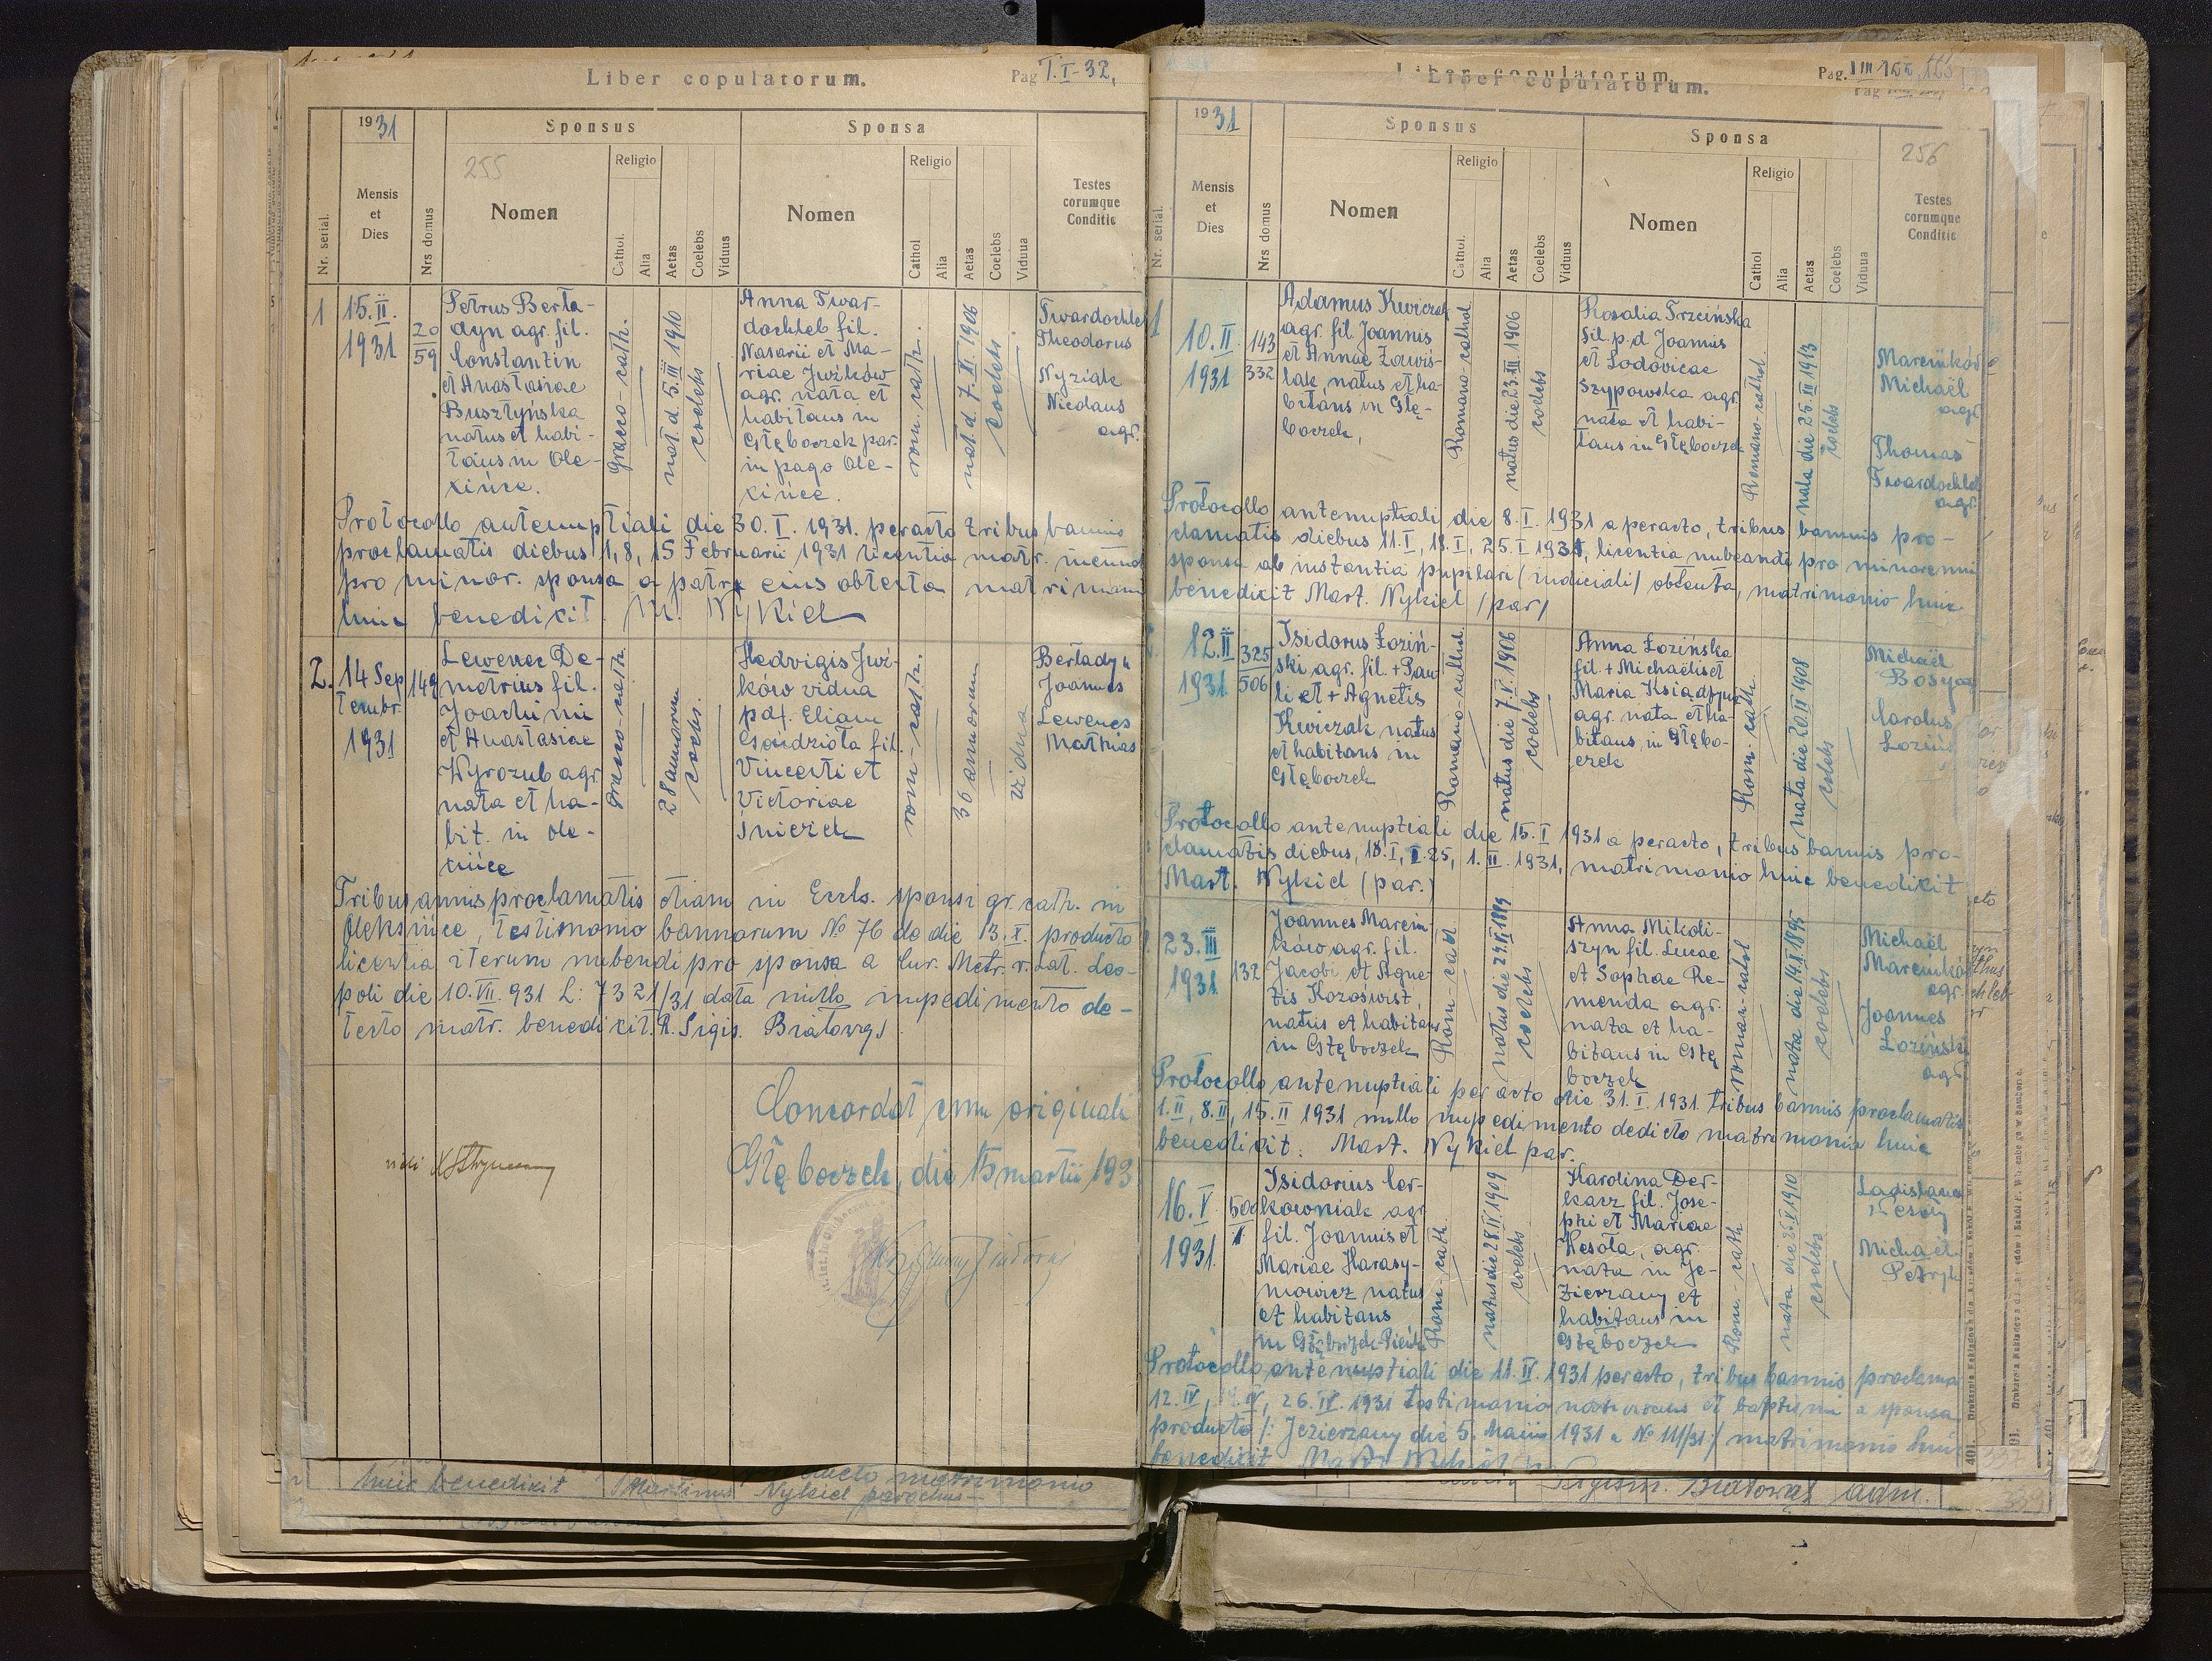 Liber copulatorum.
Pag I.I-32.
1931
Mensis
et
Dies
Nr. serial.
Nrs domus
Sponsus
255
Nomen
Religio
Cathol.
Alia
Aetas
Coelebs
Viduus
Sponsa
Nomen
Religio
Cathol
Alia
Aetas
Coelebs
Vidua
Testes
eorumque
Conditio
1
15.II.
1931
20
59
Petrus Berta-
dyn agr. fil.
Constantin
et Anastasiae
Busztyńska
natus et habi-
tans in Ole-
xińce.
graeco-cath.
nat. d. 5.III 1910
coelebs
Anna Twar-
dochleb fil.
Nasarii et Ma-
riae Jwików
agr. nata et
habitans in
Głęboczek par.
in pago Ole-
xińce.
rom. cath.
nat. d. 7.VI.1906
coelebs
Twardochleb
Theodorus
Nyziak
Nicolaus
agr.
Protocollo antenuptiali die 30.I.1931. peracto tribus bannis
proclamatis diebus 1, 8, 15 Februarii 1931 licentia matr.
pro minor. sponsa a patre eius obtenta matrimonio
huic benedixit M. Nykiel
2.
14 Sep
tembr.
1931
149
Lewenec De-
metrius fil.
Joachimi
et Anastasiae
Wyrozub agr.
nata et ha-
bit. in Ole-
xińce
graeco-cath.
28 annorum
coelebs.
Hedvigis Jwi-
ków vidua
p.df. Eliam
fil.
Vincenti et
Victoriae
Śnieżek
rom-cath.
36 annorum
vidua
Bertadyn
Joannes
Lewenes
Mathias
Tribus annis proclamatis etiam in Eccls. sponsi gr. cath. in
Oleksińce, testimonio bannorum No 76 de die 13.X. producto
licentia iterum nubendi pro sponsa a Cur. Metr. r. Lat. Leo-
poli die 10.VII.931 L: 7321/31 data nullo impedimento de-
tecto matr. benedixit. R. Sigis. Białowąs
Concordat cum originali
Głęboczek, die 15 martii 193
vidi
huic benedixit Martinus Nykiel parochus
matrimonio
Liber copulatorum.
Liber copulatorum.
Pag.
1931
Mensis
et
Dies
Nr. serial.
Nrs domus
Sponsus
Nomen
Religio
Cathol.
Alia
Aetas
Coelebs
Viduus
Sponsa
Nomen
Religio
Cathol
Alia
Aetas
Coelebs
Vidua
256
Testes
eorumque
Conditio
1
10.II.
1931
143
332
Adamus Kwiczak
agr. fil. Joannis
et Annae Zawiś-
lak, natus et ha-
bitans in Głę-
boczek,
Romano-cathol
natus die 23.III 1906
coelebs
Rosalia Trzcińska
fil. p.d Joannis
et Lodovicae
Szypowska agr.
nata et habi-
tans in Głęboczek
Romano-cathol.
nata die 25.II 1913
coelebs
Marcinków
Michaël
agr.
Thomas
Twardochleb
agr.
Protocollo antenuptiali die 8.I.1931 a peracto, tribus bannis pro-
clamatis diebus 11.I, 18.I, 25.I 1931, licentia nubeandi pro minorenni
sponsa ab instantia pupilari /iudiciali/ obtenta, matrimonio huic
benedixit Mart. Nykiel /par/
12.II
1931
325
506
Isidorus Łoziń-
ski agr. fil. + Pau-
li et + Agnetis
Kwiczak natus
et habitans in
Głęboczek
natus die 7.V.1906
coelebs
Anna Łozińska
fil. + Michaëlis et
Maria Ksiądzyna
agr. nata et ha-
bitans, in Głębo-
czek
Rom. cath.
nata die 20.II 1908
coelebs
Michaël
Carolus
Protocollo antenuptiali die 15.I 1931 a peracto, tribus bannis pro-
clamatis diebus, 18.I, I.25, 1.II.1931, matrimonio huic benedixit
Mart. Nykiel (par.)
23.III
1931
132
Joannes Marcin
ków agr. fil.
Jacobi et Agne-
tis Kozaświst,
natus et habitans
in Głęboczek
Rom-cath
coelebs
Anna Mikoli-
szyn fil. Lucae
et Sophae Re-
menda agr.
nata et ha-
bitans in Głę
boczek
roman-cathol
nata die 14.X 1895
coelebs
Michaël
Marcinków
agr.
Joannes
Łoziński
agr.
Protocollo antenuptiali peracto die 31.I.1931. tribus bannis proclamatis
1.II, 8.II, 15.II 1931 nullo impedimento dedicto matrimonio huic
benedixit. Mart. Nykiel par.
16.V
1931.
Isidorius Cer-
kowniak agr
fil. Joannis et
Mariae Harasy-
mowicz natus
et habitans
Rom-cath.
natus die 28.IV.1909
coelebs
Karolina Der-
karz fil. Jose-
phi et Mariae
Kesola, agr.
nata in Je-
zierzany et
habitans in
Głęboczek
Rom-cath
coelebs
Ladislaus
Michaël
Protocollo antenuptiali die 11.IV.1931 peracto, tribus bannis proclama
12.IV, 19.IV, 26.IV.1931 testimonio et baptismi a sponsa
producto /: Jezierzany die 5. Maii 1931 a No 111/31:/ matrimonio huic
benedixit
Sigism. Białowąs adm.